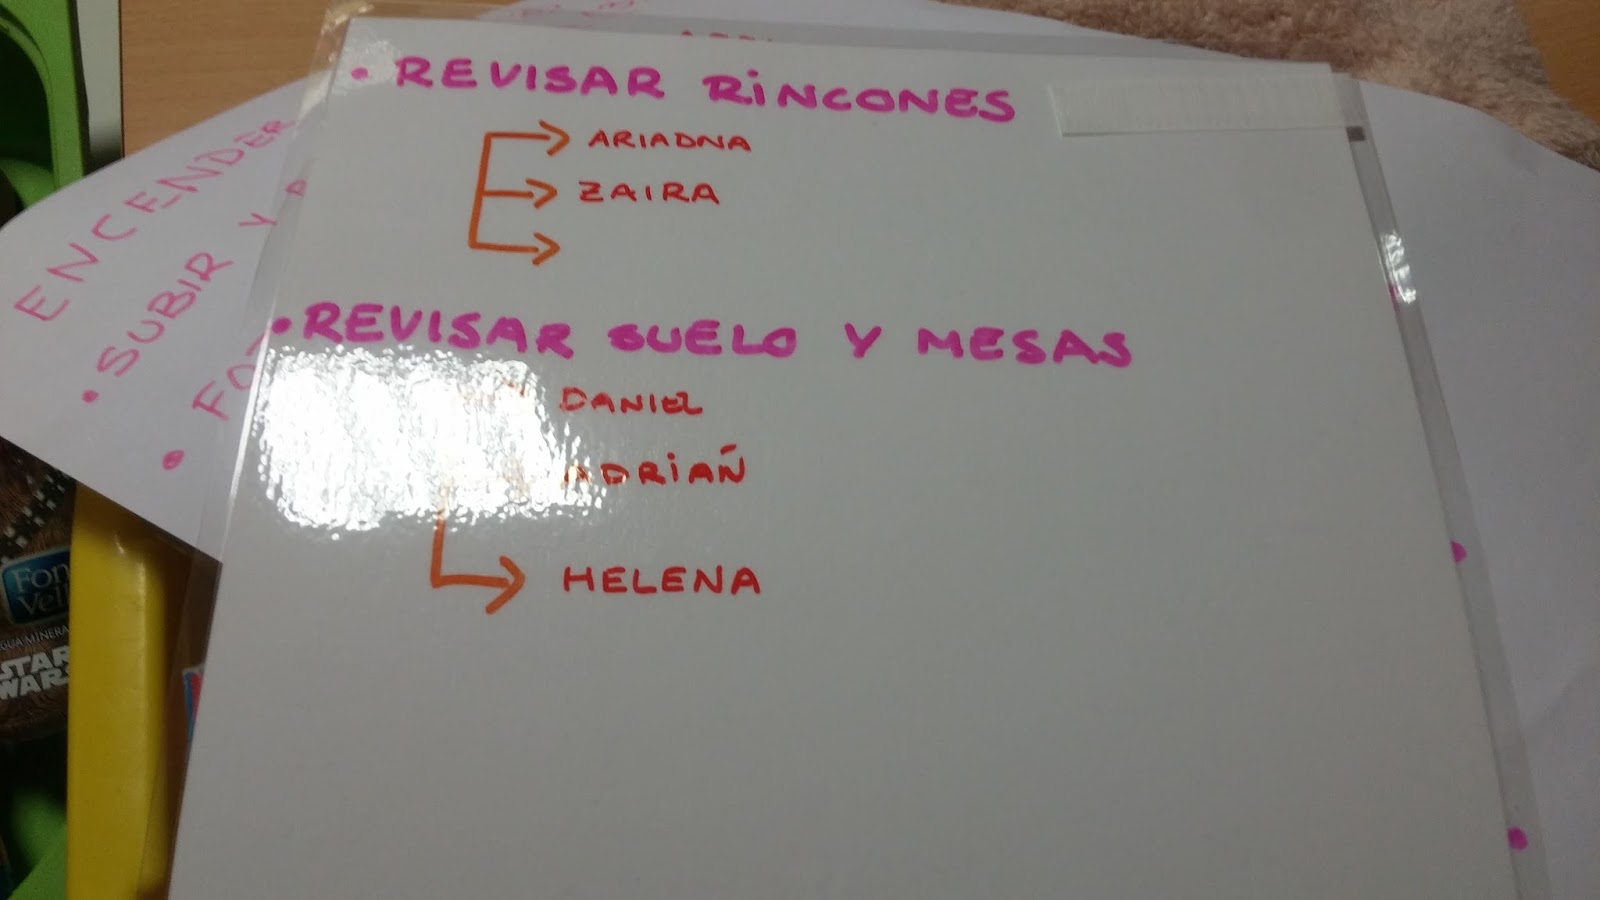 • REVISAR RINCONES
ARIADNA
ZAIRA
• REVISAR SUELO Y MESAS
DANIEL
ADRIAÑ
HELENA
ENCENDER
• SUBIR Y
•
Font
AGUA MINERAL
STAR
WARS